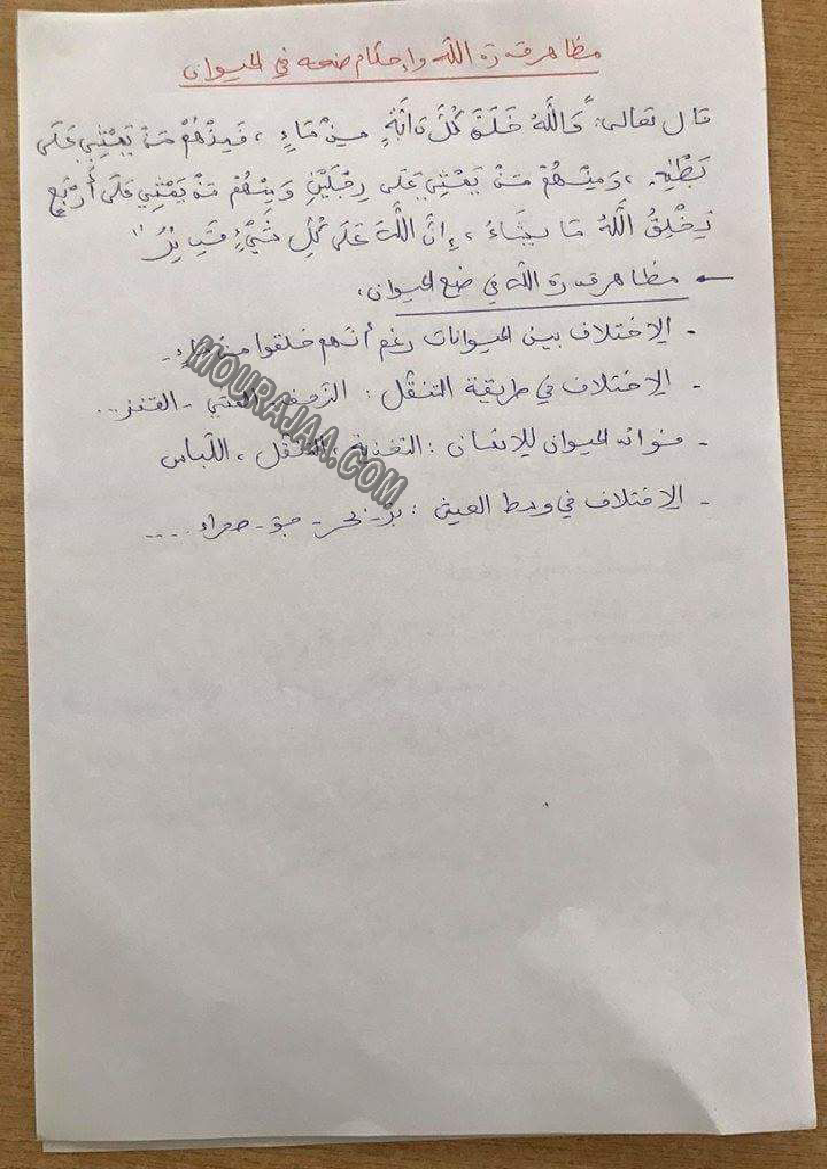 مظاهر قدرة الله وإحكام صنعه في الحيوان
قال تعالى: "وَاللَّهُ خَلَقَ كُلَّ دَابَّةٍ مِنْ مَاءٍ، فَمِنْهُمْ مَنْ يَمْشِي عَلَى
بَطْنِهِ، وَمِنْهُمْ مَنْ يَمْشِي عَلَى رِجْلَيْنِ وَمِنْهُمْ مَنْ يَمْشِي عَلَى أَرْبَعٍ
يَخْلِقُ اللَّهُ مَا يَشَاءُ، إِنَّ اللَّهَ عَلَى كُلِّ شَيْءٍ قَدِيرٌ"
← مظاهر قدرة الله في صنع الحيوان:
- الإختلاف بين الحيوانات رغم أنهم خلقوا من ماء.
- الإختلاف في طريقة التنقل: الزحف، المشي - القفز...
- فوائد الحيوان للإنسان: التغذية، التنقل، اللباس
- الإختلاف في وسط العيش: بر - بحر - جو - صحراء....
MOURAJAA.COM